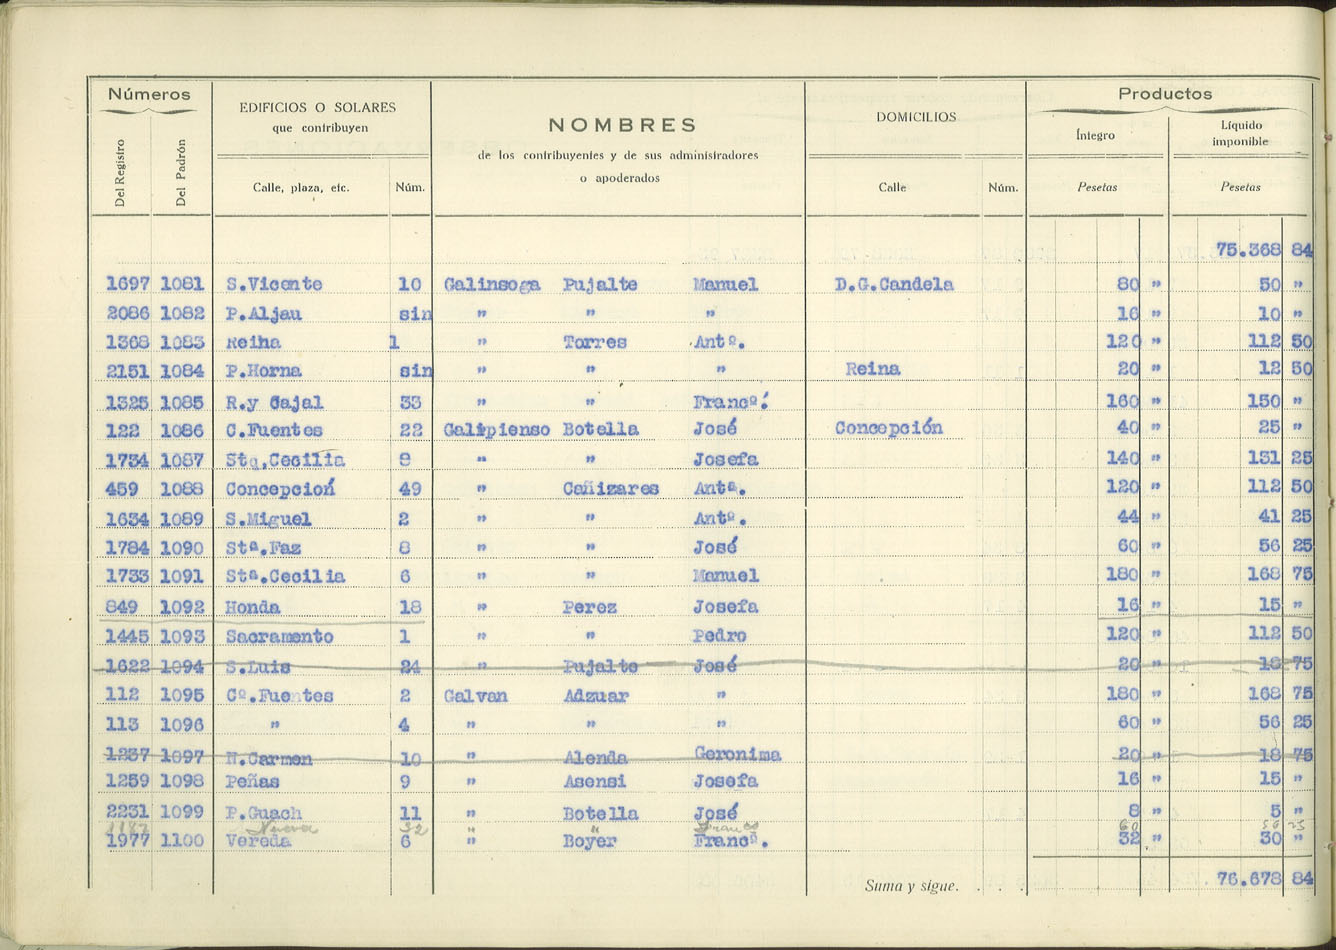 Números EDIFICIOS O SOLARES que contribuyen NOMBRES de los contribuyentes y de sus administradores o apoderados DOMICILIOS Productos
Del Registro Del Padrón Calle, plaza, etc. Núm. Calle Núm. Íntegro Pesetas Líquido imponible Pesetas
75.368 84
1697 1081 S.Vicente 10 Galinsoga Pujalte Manuel D.G.Candela 80 " 50 "
2086 1082 P.Aljau sin " " " 16 " 10 "
1368 1083 Reina 1 " Torres Antº. 120 " 112 50
2151 1084 P.Horna sin " " " Reina 20 " 12 50
1325 1085 R.y Cajal 33 " " Francº. 160 " 150 "
122 1086 C.Fuentes 22 Galipienso Botella José Concepción 40 " 25 "
1734 1087 Stª.Cecilia 8 " " Josefa 140 " 131 25
459 1088 Concepción 49 " Cañizares Antª. 120 " 112 50
1634 1089 S.Miguel 2 " " Antº. 44 " 41 25
1784 1090 Stª.Faz 8 " " José 60 " 56 25
1733 1091 Stª.Cecilia 6 " " Manuel 180 " 168 75
849 1092 Honda 18 " Perez Josefa 16 " 15 "
1445 1093 Sacramento 1 " " Pedro 120 " 112 50
1622 1094 S.Luis 24 " Pujalte José 20 " 18 75
112 1095 Cº.Fuentes 2 Galvan Adzuar " 180 " 168 75
113 1096 " 4 " " " 60 " 56 25
1237 1097 N.Carmen 10 " Alenda Geronima 20 " 18 75
1259 1098 Peñas 9 " Asensi Josefa 16 " 15 "
2231 1099 P.Guach 11 " Botella José 8 " 5 "
1187 Nueva 32 " " Francº 60 56 25
1977 1100 Vereda 6 " Boyer Francº. 32 " 30 "
Suma y sigue. . . . 76.678 84